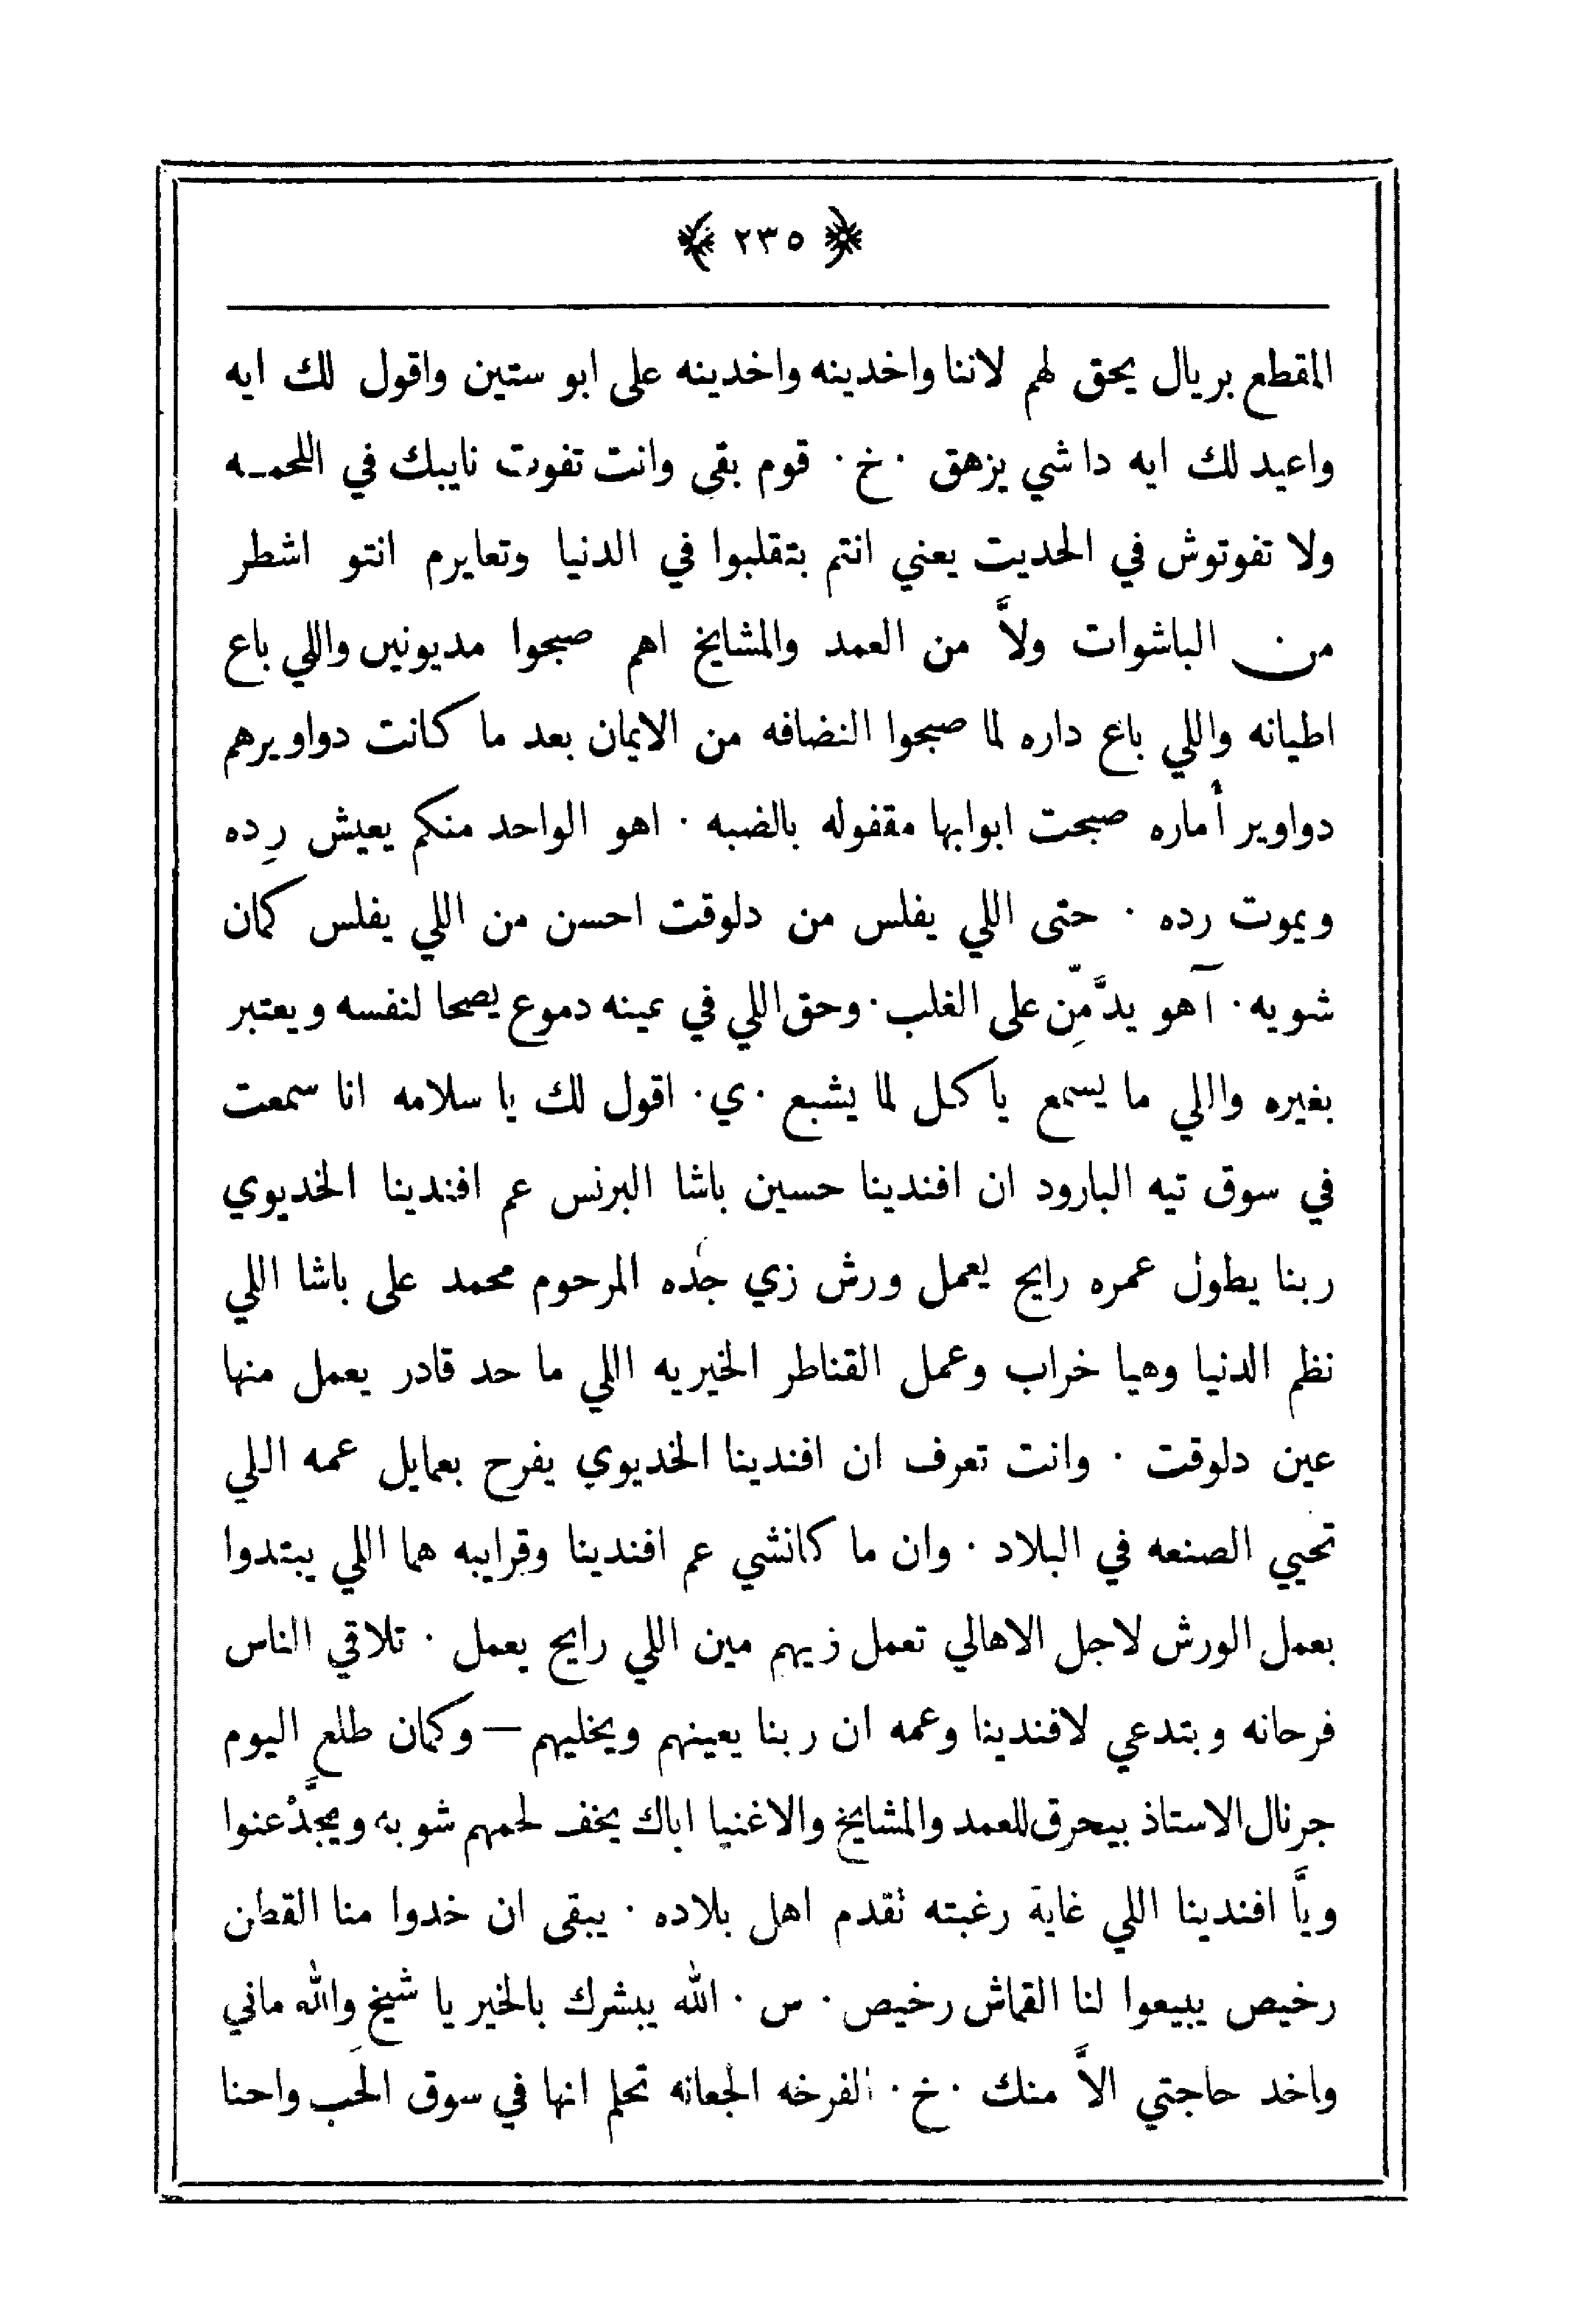 ﴿ ٢٣٥ ﴾
المقطع بريال يحق لهم لاننا واخدينه واخدينه على ابو ستين واقول لك ايه
واعيد لك ايه دا شي يزهق ٠ خ ٠ قوم بقى وانت تفوت نايبك في اللحمـه
ولا تفوتوش في الحديت يعني انتم بتقلبوا في الدنيا وتعايرم انتو اشطر
من الباشوات ولاَّ من العمد والمشايخ اهم صبحوا مديونين واللي باع
اطيانه واللي باع داره لما صبحوا النضافه من الايمان بعد ما كانت دواويرهم
دواوير أماره صبحت ابوابها مقفوله بالضبه ٠ اهو الواحد منكم يعيش رِده
ويموت رده ٠ حتى اللي يفلس من دلوقت احسن من اللي يفلس كمان
شويه ٠ آهو يدَّمِّن على الغلب ٠ وحق اللي في عينه دموع يصحا لنفسه ويعتبر
بغيره واللي ما يسمع ياكل لما يشبع ٠ ي ٠ اقول لك يا سلامه انا سمعت
في سوق تيه البارود ان افندينا حسين باشا البرنس عم افندينا الخديوي
ربنا يطول عمره رايح يعمل ورش زي جده المرحوم محمد على باشا اللي
نظم الدنيا وهيا خراب وعمل القناطر الخيريه اللي ما حد قادر يعمل منها
عين دلوقت ٠ وانت تعرف ان افندينا الخديوي يفرح بعمايل عمه اللي
تحيي الصنعه في البلاد ٠ وان ما كانشي عم افندينا وقرايبه هما اللي يبتدوا
بعمل الورش لاجل الاهالي تعمل زيهم مين اللي رايح يعمل ٠ تلاقي الناس
فرحانه وبتدعي لافندينا وعمه ان ربنا يعينهم ويخليهم — وكمان طلع اليوم
جرنال الاستاذ بيحرق للعمد والمشايخ والاغنيا اياك يخف لحمهم شويه ويجَّدْعنوا
ويَّا افندينا اللي غاية رغبته تقدم اهل بلاده ٠ يبقى ان خدوا منا القطن
رخيص يبيعوا لنا القماش رخيص ٠ س ٠ الله يبشرك بالخير يا شيخ والله ماني
واخد حاجتي الاَّ منك ٠ خ ٠ الفرخه الجعانه تحلم انها في سوق الحَب واحنا